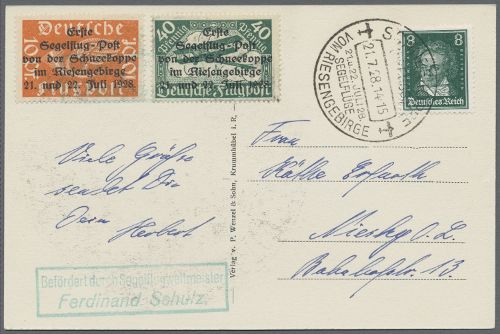 Deutsche
10 10
Erste
Segelflug-Post
von der Schneekoppe
im Riesengebirge
21. und 22. Juli 1928.
40 Pfennig 40
Erste
Segelflug-Post
von der Schneekoppe
im Riesengebirge
21. und 22. Juli 1928.
Deutsche Flugpost
21.7.28.14-15
21. u. 22. JULI 28
SEGELFLÜGE
VOM RIESENGEBIRGE
8 8
Deutsches Reich
Viele Grüße
sendet Dir
Dein Herbert
Befördert durch Segelflugweltmeister
Ferdinand Schulz.
Verlag v. P. Wenzel & Sohn, Krummhübel i. R.
Frau
Käthe Erfurth
Niesky O. L.
Bahnhofstr. 13